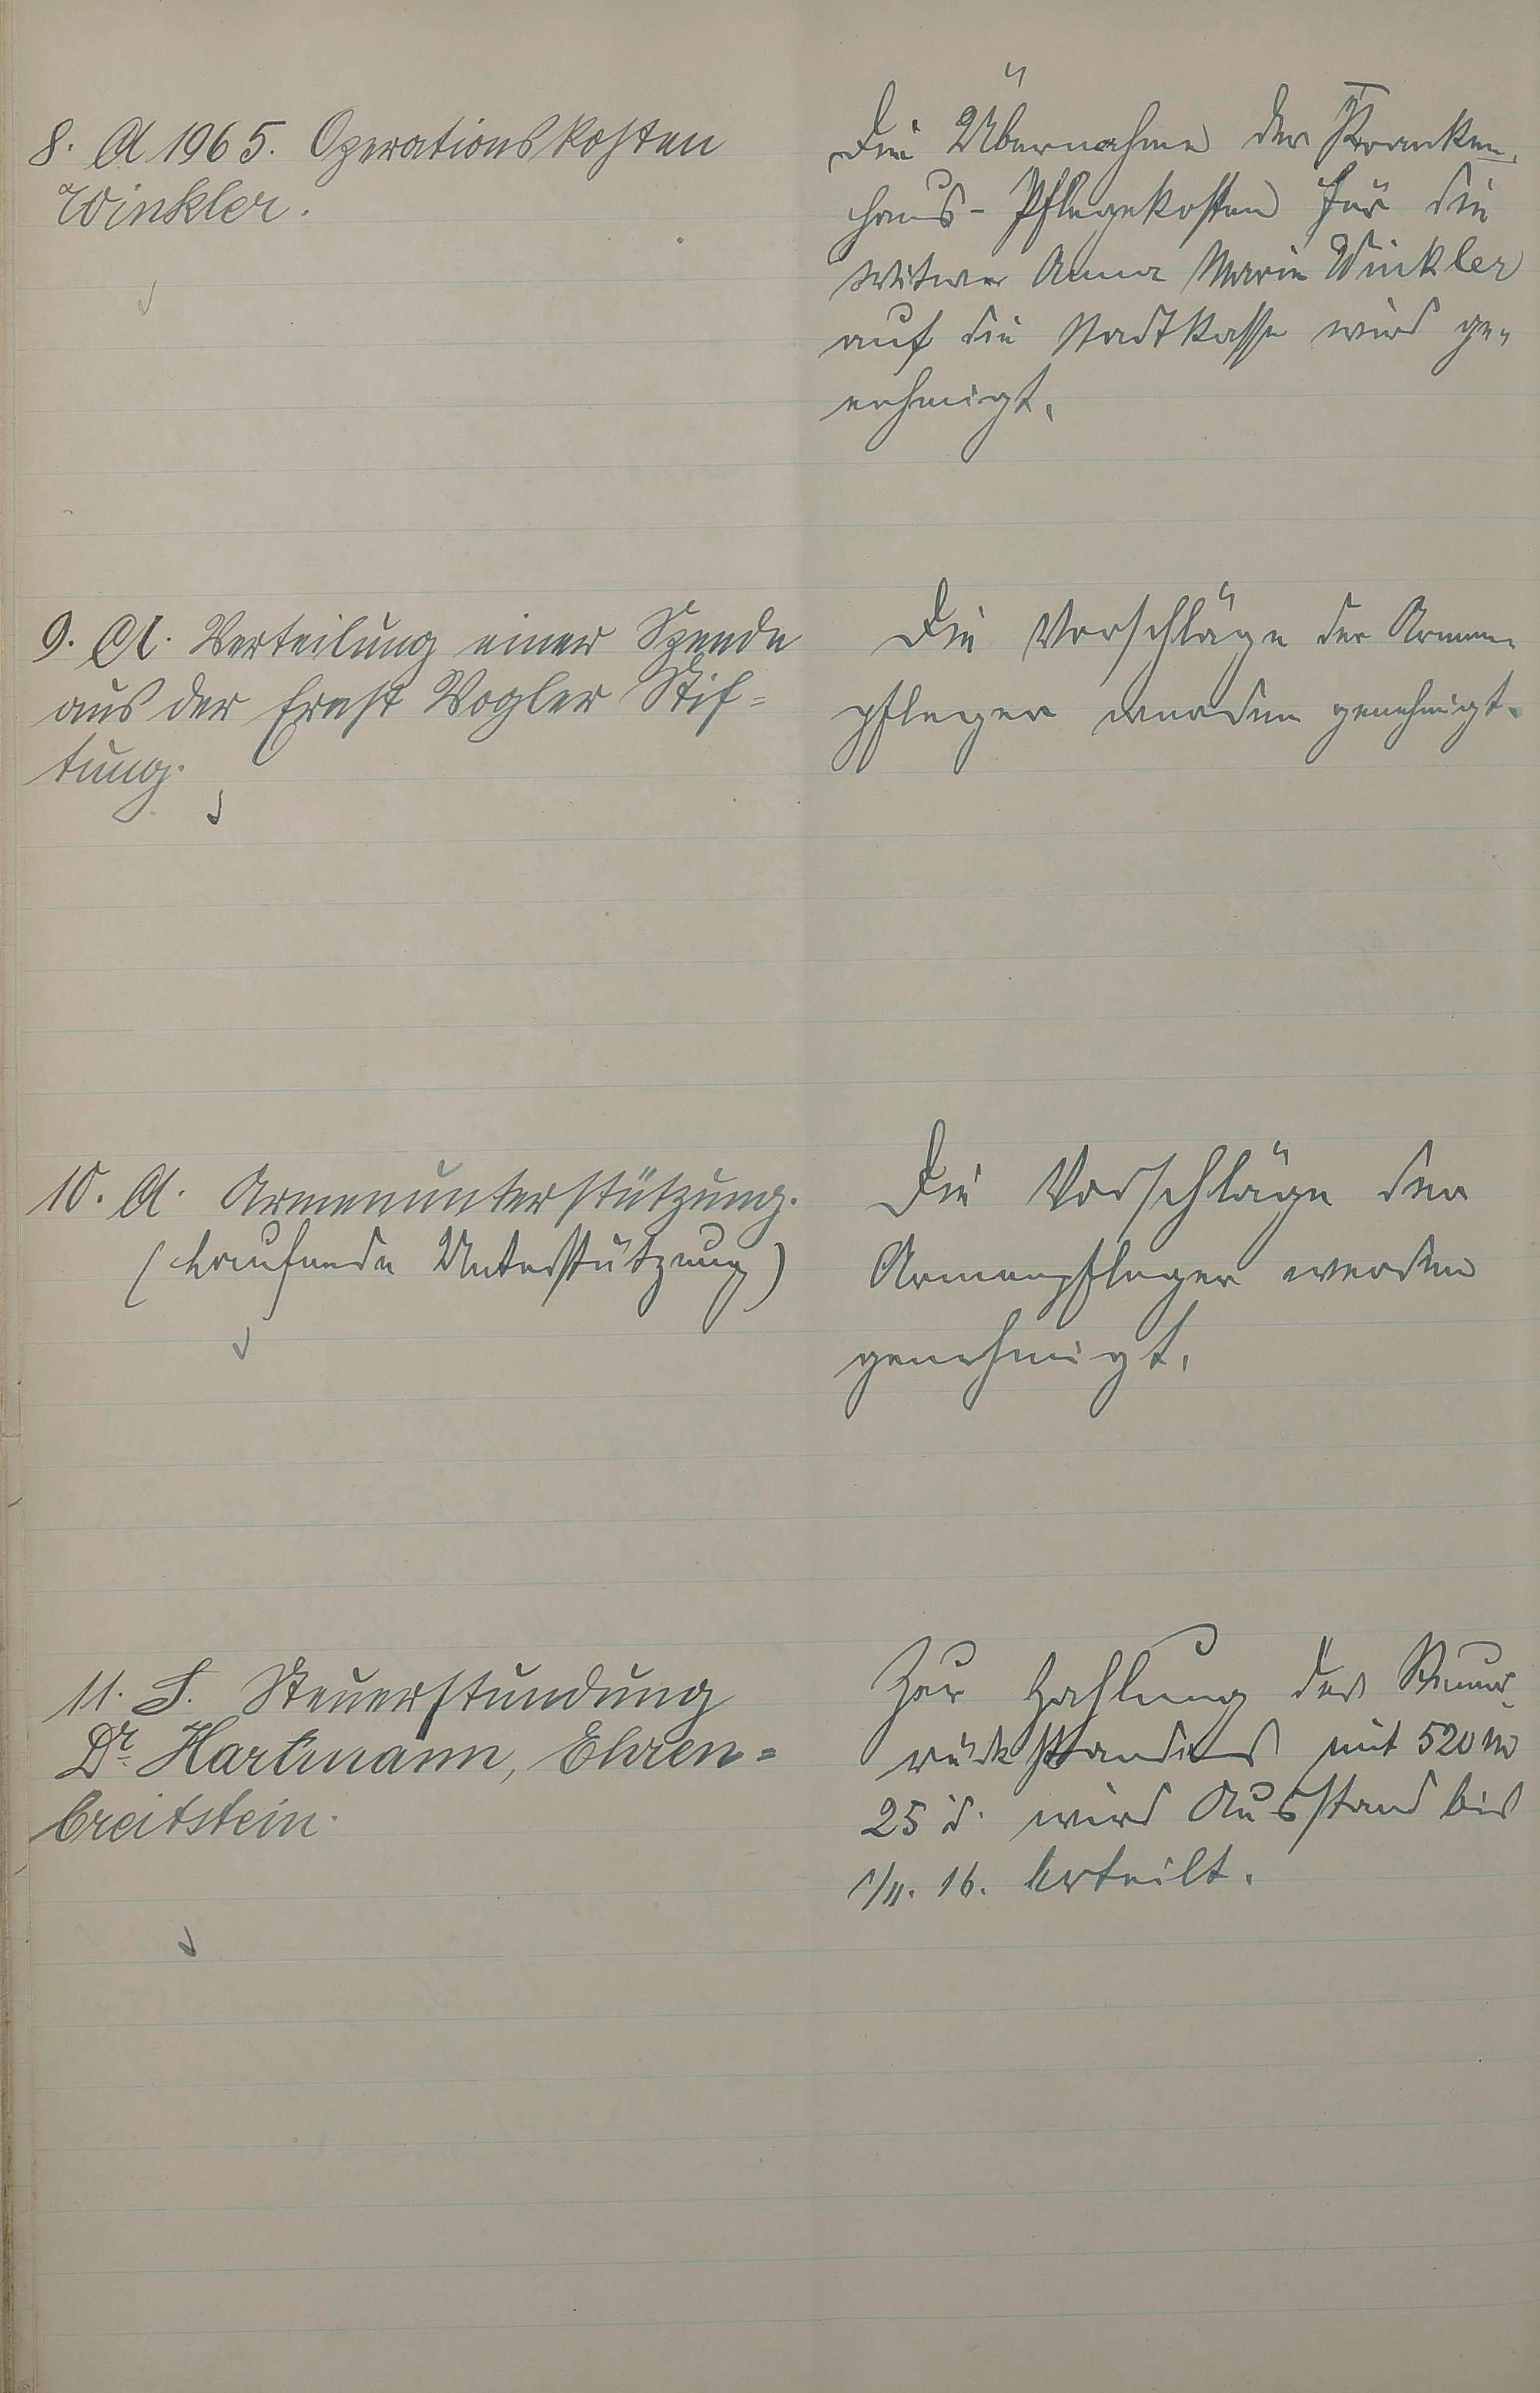 8. A 1965. Operationskosten
Winkler.
Die Übernahme der Kranken-
haus-Pflegekosten für die
Witwe Anna Marie Winkler
auf die Stadtkasse wird ge-
nehmigt.
9. A. Verteilung einer Spende
aus der Ernst Vogler Stif=
tung.
Die Vorschläge der Armen-
pfleger werden genehmigt.
10. A. Armenunterstützung.
(Laufende Unterstützung)
Die Vorschläge der
Armenpfleger werden
genehmigt.
11. S. Steuerstundung
Dr. Hartmann, Ehren=
breitstein.
Zur Zahlung des Steuer-
rückstandes mit 520 M
25 d. wird Ausstand bis
1/II. 16. erteilt.